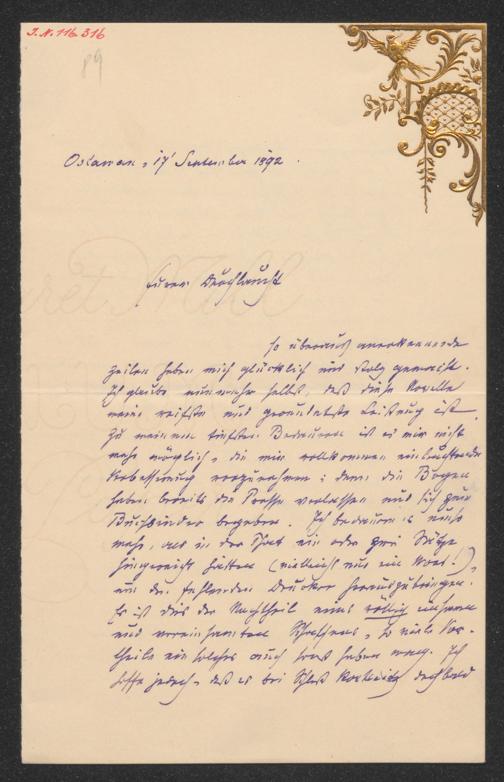 I.N. 116.316
89
17 September 1892.
Eurer Durchlaucht
so überaus anerkennende
Zeilen haben mich glücklich und stolz gemacht.
Ich glaube nunmehr selbst, daß diese Novelle
meine reifste und gerundetste Leistung ist.
Zu meinem tiefsten Bedauern ist es mir nicht
mehr möglich, die mir vollkommen einleuchtende
Verbesserung vorzunehmen; denn die Bogen
haben bereits die Presse verlassen und sich zum
Buchbinder begeben. Ich bedauere es umso
mehr, als in der That ein oder zwei Sätze
hingereicht hätten (vielleicht nur ein Wort!),
um den fehlenden Drucker herauszubringen.
Es ist dies der Nachtheil eines völlig
und vereinsamten Schaffens, so viele Vor-
theile ein solches auch sonst haben mag. Ich
hoffe jedoch, daß es bei Schloß Kostenitz doch bald